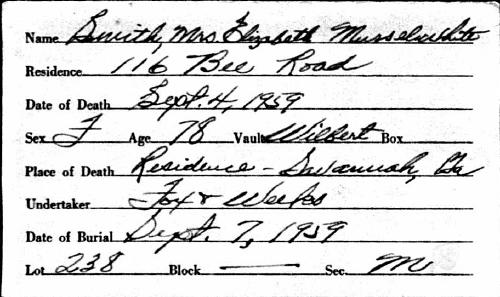 Name Smith, Mrs Elizabeth Musselwhite
Residence 116 Bee Road
Date of Death Sept. 4, 1959
Sex F Age 78 Vault Wilbert Box
Place of Death Residence - Savannah, Ga
Undertaker Fox & Weeks
Date of Burial Sept. 7, 1959
Lot 238 Block — Sec. M